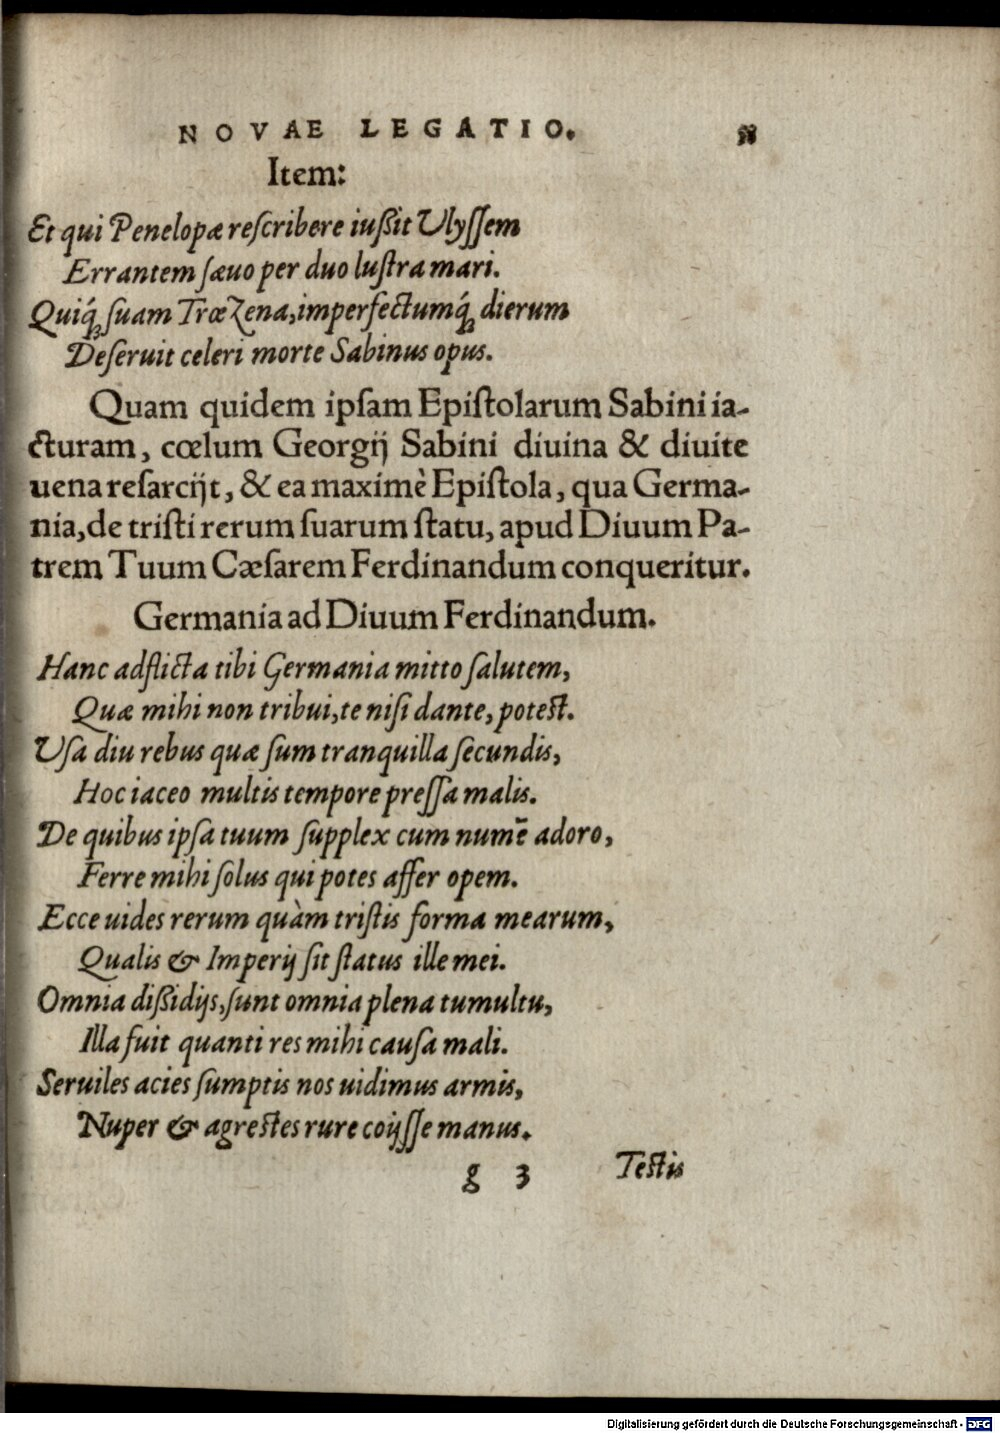 NOVAE LEGATIO.
Item:
Et qui Penelopæ reſcribere iußit Ulyſſem
Errantem ſæuo per duo luſtra mari.
Quiq́ꝫ ſuam Trœzena, imperfectumq́ꝫ dierum
Deſeruit celeri morte Sabinus opus.
Quam quidem ipſam Epiſtolarum Sabini ia-
cturam, cœlum Georgij Sabini diuina & diuite
uena reſarcijt, & ea maximè Epiſtola, qua Germa-
nia, de triſti rerum ſuarum ſtatu, apud Diuum Pa-
trem Tuum Cæſarem Ferdinandum conqueritur.
Germania ad Diuum Ferdinandum.
Hanc adflicta tibi Germania mitto ſalutem,
Quæ mihi non tribui, te niſi dante, poteſt.
Uſa diu rebus quæ ſum tranquilla ſecundis,
Hoc iaceo multis tempore preſſa malis.
De quibus ipſa tuum ſupplex cum numē adoro,
Ferre mihi ſolus qui potes affer opem.
Ecce uides rerum quàm triſtis forma mearum,
Qualis & Imperij ſit ſtatus ille mei.
Omnia dißidijs, ſunt omnia plena tumultu,
Illa fuit quanti res mihi cauſa mali.
Seruiles acies ſumptis nos uidimus armis,
Nuper & agreſtes rure coijſſe manus.
g 3 Teſtis
Digitalisierung gefördert durch die Deutsche Forschungsgemeinschaft - DFG